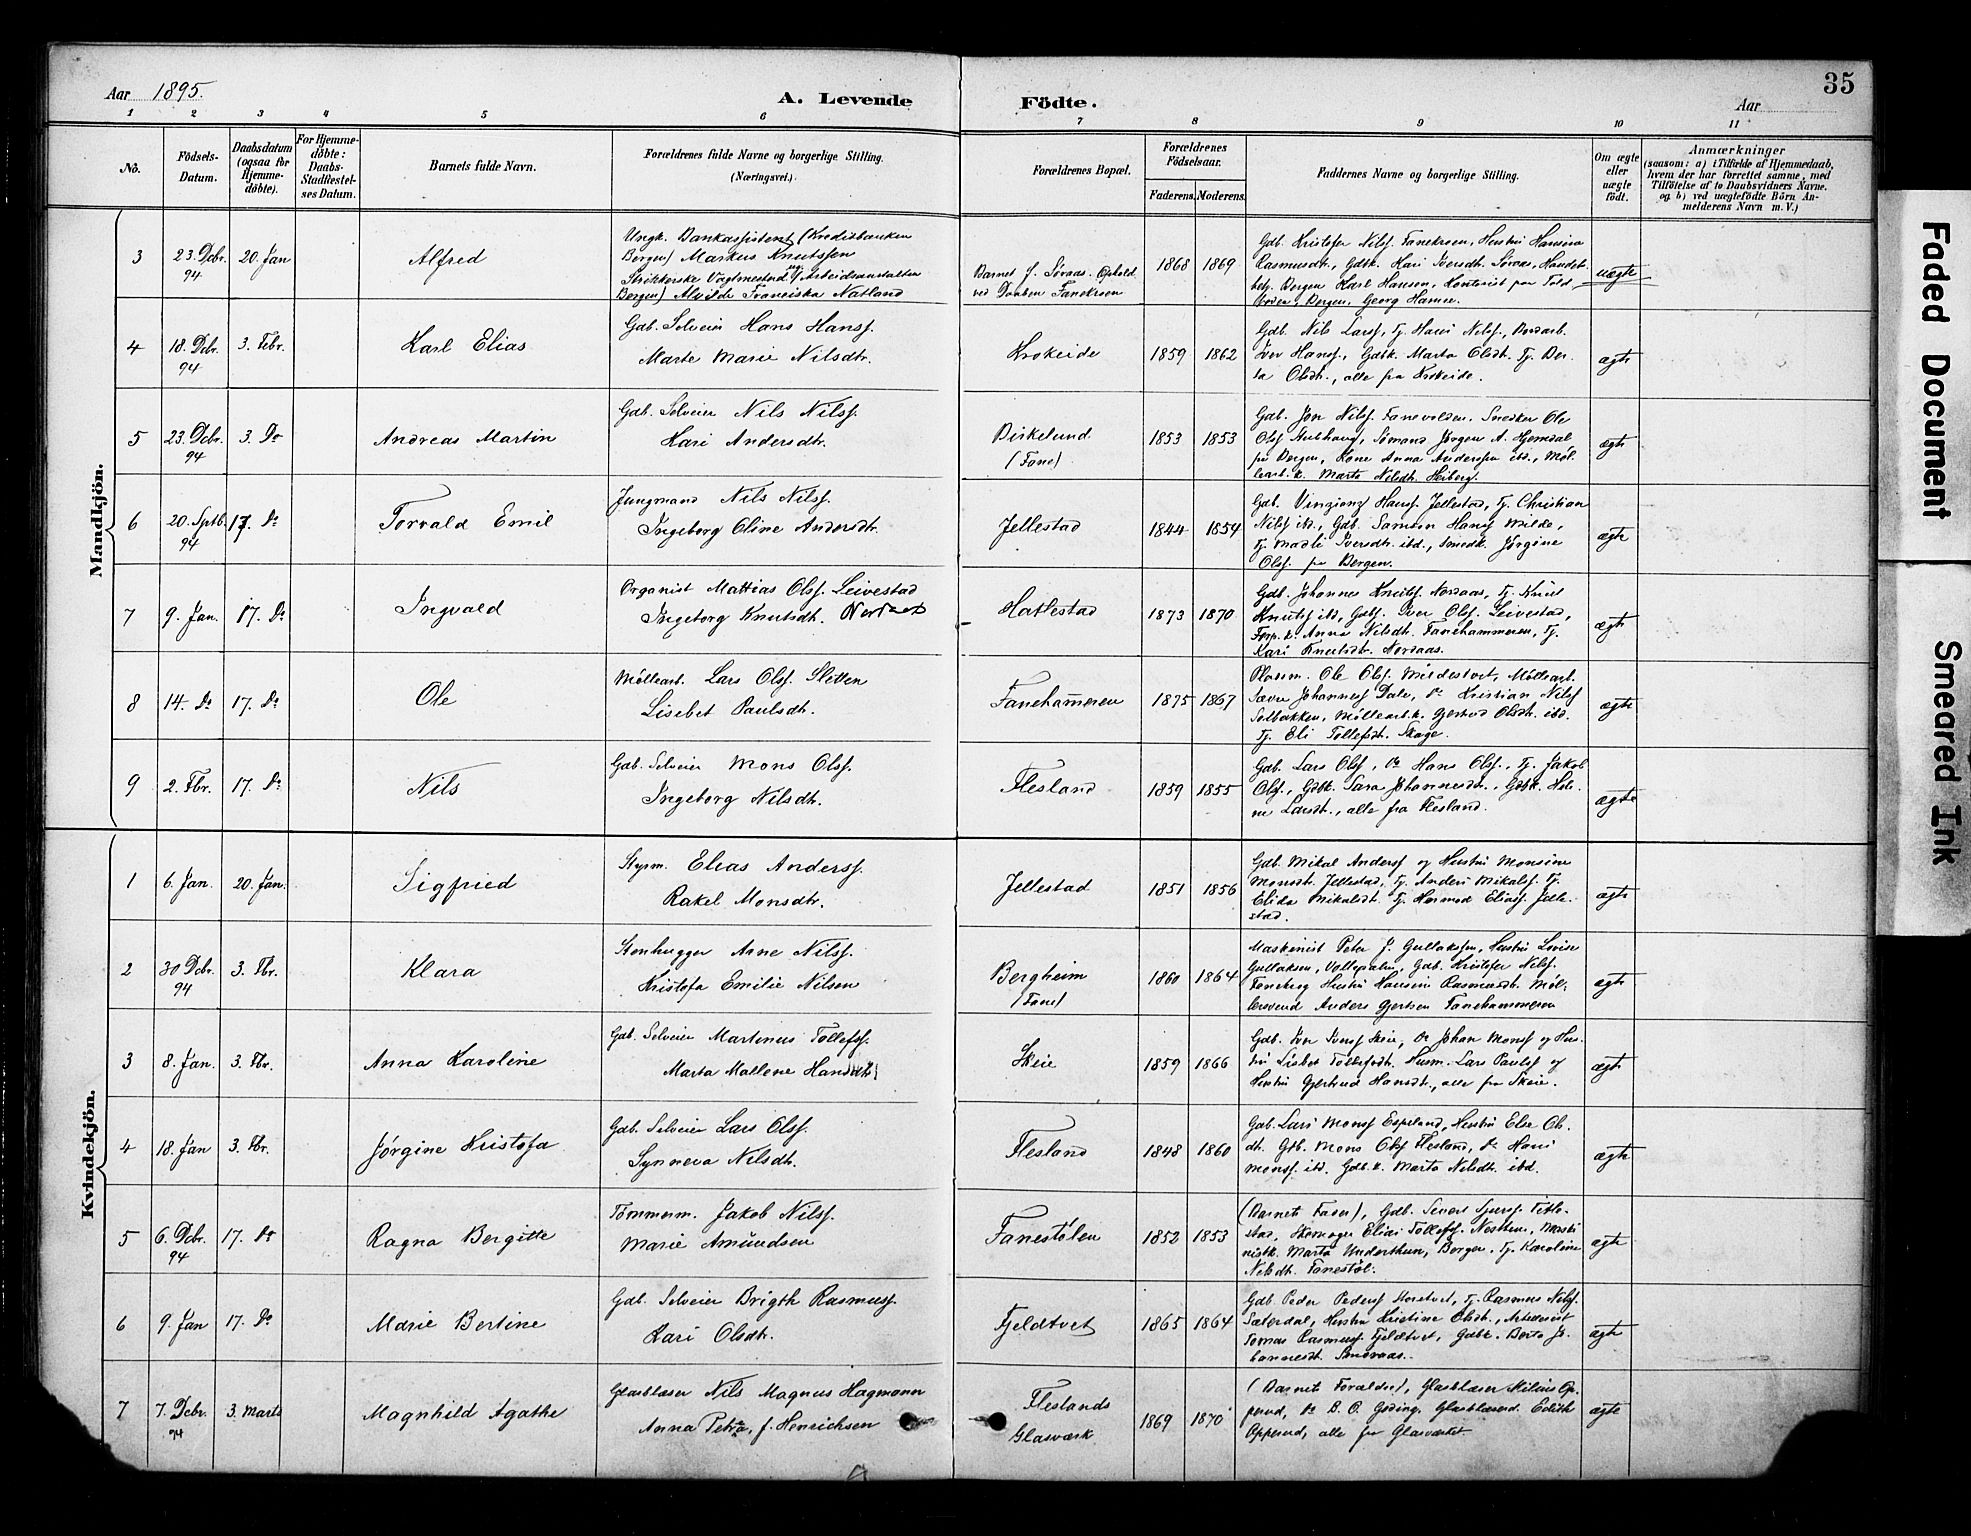 35
Aar 1895.
A. Levende Födte.
Aar
1 2 3 4 5 6 7 8 9 10 11
No.
Födsels-Datum.
Daabsdatum (ogsaa for Hjemmedöbte).
For Hjemmedöbte: Daabs-Stadfæstelses Datum.
Barnets fulde Navn.
Forældrenes fulde Navne og borgerlige Stilling.
(Næringsvei.)
Forældrenes Bopæl.
Forældrenes Födselsaar.
Faderens. Moderens.
Faddernes Navne og borgerlige Stilling.
Om ægte eller uægte födt.
Anmærkninger
(saasom: a) i Tilfælde af Hjemmedaab,
hvem der har forrettet samme, med
Tilföielse af to Daabsvidners Navne.
og b) ved uægtefödte Börn Anmelderens Navn m. V.)
Mandkjön.
3 23. Dcbr. 94 20. Jan Alfred
Ungk. Bankassistent (Kreditbanken
Bergen) Markus Knutssen
Strikkerske Vogtmestad og Arbeidsanstalten
Bergen) Alvilde Franciska Natland
Barnet f. Søraas. Ophold
ved Daaben Fanekroen
1868 1869
Gdb. Kristofer Nilss. Fanekroen, Hustru Hansine
Rasmusdt., Gdbk. Kari Iversdt. Søraas, Handelsbetj. Bergen Karl Hansen, Kontorist paa Toldboden, Bergen, Georg Hansen.
uægte
4 18. Dcbr. 94 3. Febr. Karl Elias
Gdb. Selveier Hans Hanss.
Marte Marie Nilsdtr.
Krokeide
1859 1862
Gdb. Nils Larss, Tj. Hans Nilss.,
Iver Hanss., Gdbk. Marta Olsdt. Tj. Berta Olsdt., alle fra Krokeide.
ægte
5 23. Dcbr. 94 3. Do Andreas Martin
Gdb. Selveier Nils Nilss.
Kari Andersdtr.
Birkelund
(Fane)
1853 1853
Gdb. Jon Nilss. Fanevolden. Snedker Ole
Olss Stubhaug, Sømand Jørgen A. Hjemdal
fra Bergen, Kone Anna Anderssen ibd., Møllearb. k. Marta Nilsdt. Heiberg.
ægte
6 20. Sptb. 94 17. Do Torvald Emil
Jungmand Nils Nilss.
Ingeborg Oline Andersdtr.
Jellestad
1844 1854
Gdb. Hanss. Jellestad, Tj. Christian
Nilss ibd., Gdb. Samson Hanss Milde,
Tj. Madli Iversdtr. ibd., Smedk. Jørgine
Olss. fra Bergen.
ægte
7 9. Jan. 17. Do Ingvald
Organist Mattias Olss. Leivestad
Ingeborg Knutsdt. Nordaas
Hatlestad
1873 1870
Gdb. Johannes Knuts. Nordaas, Tj. Knut
Knuts ibd, Gdbs. Iver Olss. Leivestad,
Forp. k. Anna Nilsdt. Fanehammeren, Tj.
Kari Knutsdtr. Nordaas.
ægte
8 14. Do 17. Do Ole
Møllearb. Lars Olss. Sletten
Lisebet Paulsdt.
Fanehameren
1875 1867
Pladsm. Ole Olss. Mildestvet, Møllearb.
Johanness Dale, Do Kristian Nilss
Solbakken, Møllearb. k. Gjertrud Olsdt. ibd.
Tj. Eli Tollefsdt. Skage.
ægte
9 2. Fbr. 17. Do Nils
Gdb. Selveier Mons Olss.
Ingeborg Nilsdt.
Flesland
1859 1855
Gdb. Lars Olss, Do Hans Olss., Tj. Jakob
Olss., Gdbk. Sara Johannesdt., Gdbk. Helene Larsdt., alle fra Flesland.
ægte
Kvindekjön.
1 6. Jan. 20. Jan. Sigfried
Styrm. Elias Anderss.
Rakel Monsdtr.
Jellestad
1851 1856
Gdb. Mikal Anderss og Hustru Monsine
Monsdt. Jellestad, Tj. Anders Mikals. Tj.
Elida Mikalsdt. Tj. Hermod Eliass. Jellestad.
ægte
2 30 Dcbr. 94 3. Fbr. Klara
Stenhugger Arne Nilss.
Kristofa Emilie Nilsen
Bergheim
(Fane)
1860 1864
Maskinist Peter J. Gullaksen, Hustru Lovise
Gullaksen, Gdb. Kristofer Nilss.
Hustru Hansine Rasmusdt.
Anders Gjertsen Fanehammeren
ægte
3 8. Jan. 3. Fbr. Anna Karoline
Gdb. Selveier Martinus Tollefss.
Marta Mallene Hansdtr
Skeie
1859 1866
Gdb. Iver Iverss Skeie, Do Johan Monss og Hustru Lisbet Tollefsdt. Husm. Lars Paulss og
Hustru Gjertrud Hansdt., alle fra Skeie.
ægte
4 18. Jan 3. Fbr. Jørgine Kristofa
Gdb. Selveier Lars Olss.
Synneva Nilsdt.
Flesland
1848 1860
Gdb. Lars Monss Espeland, Hustru Else Olsdt. Gdb. Mons Olss Flesland, Do Hans
Monss. ibd. Gdb. k. Marta Nilsdt. ibd.
ægte
5 6. Dcbr. 94 17. Do Ragna Bergitte
Tömmerm. Jakob Nilss.
Marie Amundsen
Fanestølen
1852 1853
(Barnets Fader), Gdb. Sivert Titlestad, Skomager Elias Tollefss. Nesttun, Maskinistk. Marta Underthun, Bergen. Tj. Karoline
Nilsdt. Fanestøl.
ægte
6 9. Jan 17. Do Marie Bertine
Gdb. Selveier Brigth Rasmuss.
Kari Olsdt.
Fjeldtvet
1865 1864
Gdb. Peder Pederss Storetvet, Tj. Rasmus Nilss.
Sæterdal, Hustru Kristine Olsdt.,
Tomas Rasmuss. Fjeldtvet, Gdbk. Berta Johannesdt. Smøraas.
ægte
7 7. Dcbr. 94 3. Marts Magnhild Agathe
Glasblæser Nils Magnus Hagmann
Anna Petra, f. Henrichsen
Fleslands
Glasværk
1869 1870
(Barnets Forældre), Glasblæser Milius Opperud, Do B. O. Goding, Edith
Opperud, alle fra Glasværket.
ægte
Faded Document
Smeared Ink